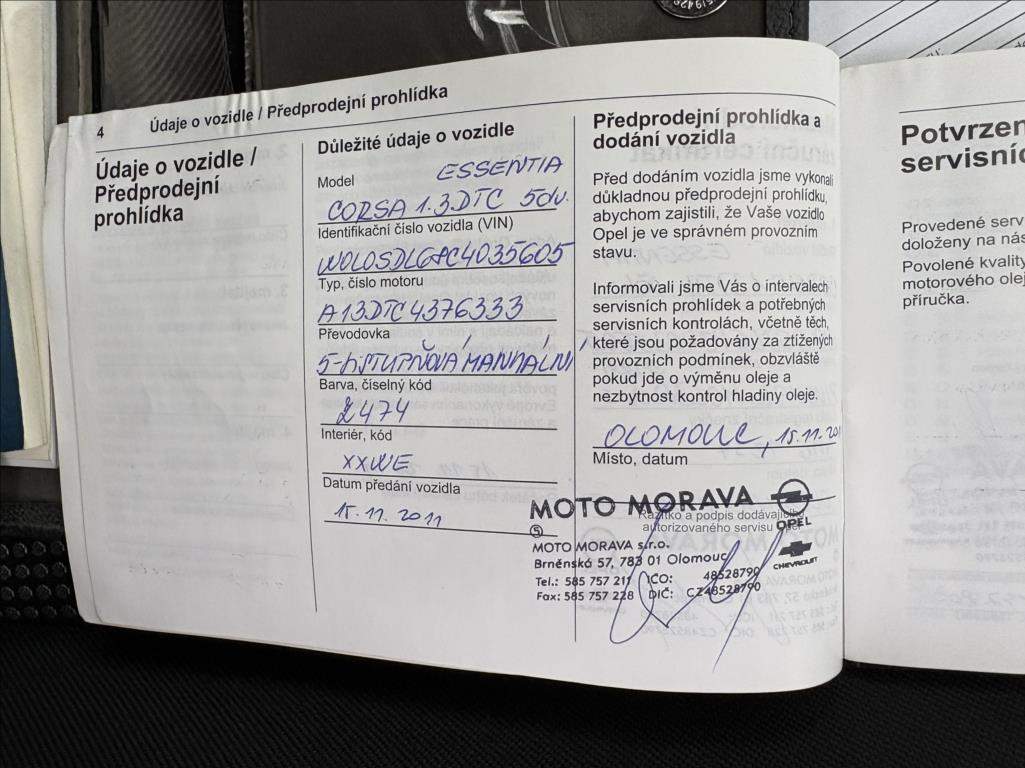 4 Údaje o vozidle / Předprodejní prohlídka
Údaje o vozidle /
Předprodejní
prohlídka
Důležité údaje o vozidle
Model ESSENTIA
CORSA 1.3DTC 5dv.
Identifikační číslo vozidla (VIN)
W0L0SDL68C4035605
Typ, číslo motoru
A13DTC4376333
Převodovka
5-ti STUPŇOVÁ, MANUÁLNÍ
Barva, číselný kód
Z474
Interiér, kód
XXWE
Datum předání vozidla
15.11.2011
Předprodejní prohlídka a
dodání vozidla
Před dodáním vozidla jsme vykonali
důkladnou předprodejní prohlídku,
abychom zajistili, že Vaše vozidlo
Opel je ve správném provozním
stavu.
Informovali jsme Vás o intervalech
servisních prohlídek a potřebných
servisních kontrolách, včetně těch,
které jsou požadovány za ztížených
provozních podmínek, obzvláště
pokud jde o výměnu oleje a
nezbytnost kontrol hladiny oleje.
OLOMOUC, 15.11.201
Místo, datum
MOTO MORAVA
Razítko a podpis dodávajícího
autorizovaného servisu Opel
OPEL
5
CHEVROLET
MOTO MORAVA s.r.o.
Brněnská 57, 783 01 Olomouc
Tel.: 585 757 211 IČO: 48528790
Fax: 585 757 228 DIČ: CZ48528790
Potvrzen
servisníc
Provedené serv
doloženy na nás
Povolené kvality
motorového olej
příručka.